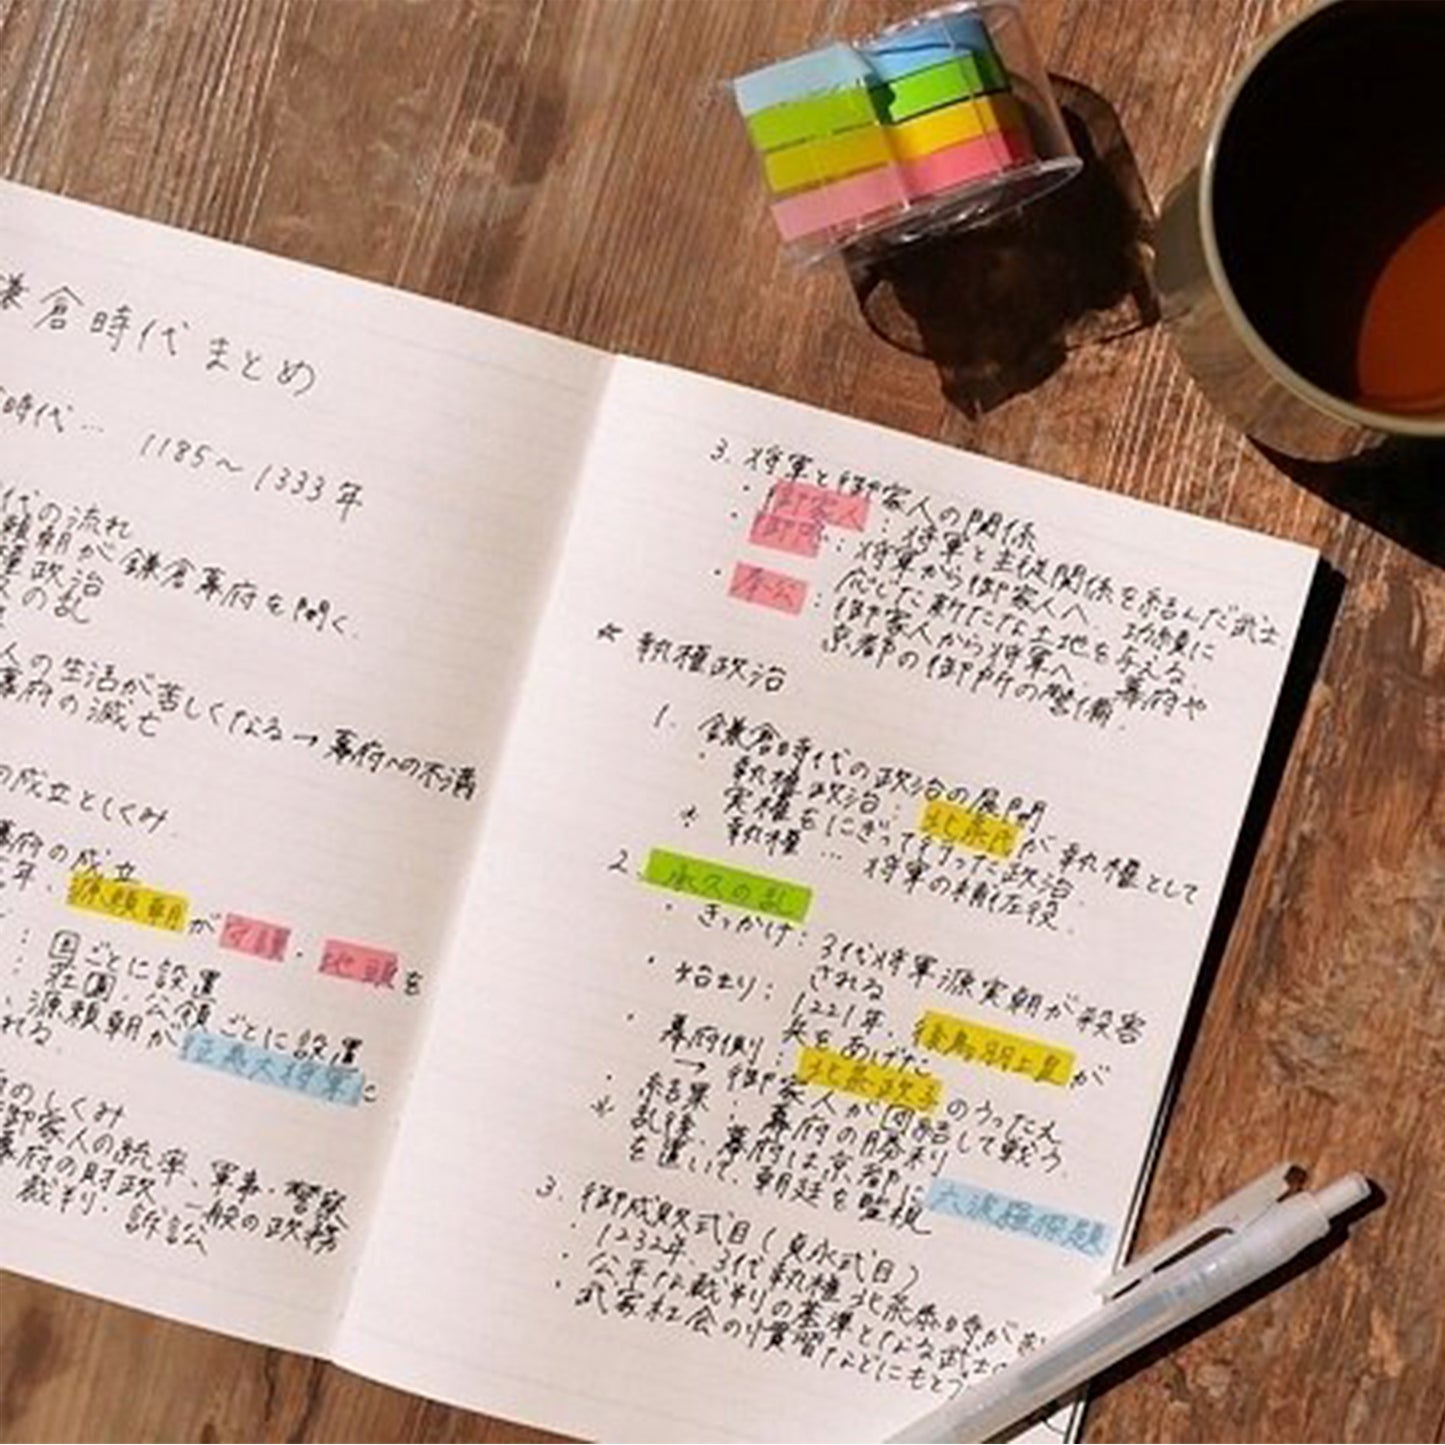 鎌倉時代 まとめ
時代… 1185〜1333年
代の流れ
頼朝が鎌倉幕府を開く.
権政治
の乱
人の生活が苦しくなる→幕府への不満
幕府の滅亡
の成立としくみ.
幕府の成立
年.源頼朝が守護.地頭を
:国ごとに設置
:荘園.公領ごとに設置
、源頼朝が征夷大将軍に
れる.
のしくみ
御家人の統率、軍事.警察
幕府の財政.一般の政務
裁判.訴訟
3.将軍と御家人の関係
・御家人:将軍と主従関係を結んだ武士
・御恩:将軍から御家人へ 功績に
応じた新たな土地を与える
・奉公:御家人から将軍へ.幕府や
京都の御所の警備.
☆執権政治
1. 鎌倉時代の政治の展開
・執権政治.北条氏が執権として
実権をにぎって行った政治.
* 執権 … 将軍の補佐役.
2.承久の乱
・きっかけ:3代将軍源実朝が殺害
される
・始まり:1221年.後鳥羽上皇が
兵をあげた
・幕府側:北条政子のうったえ
→御家人が団結して戦う.
・結果:幕府の勝利
* 乱後、幕府は京都に六波羅探題
を置いて、朝廷を監視
3. 御成敗式目(貞永式目)
・1232年、3代執権北条泰時が
・公平な裁判の基準となる武士
・武家社会の慣習などにもとづ